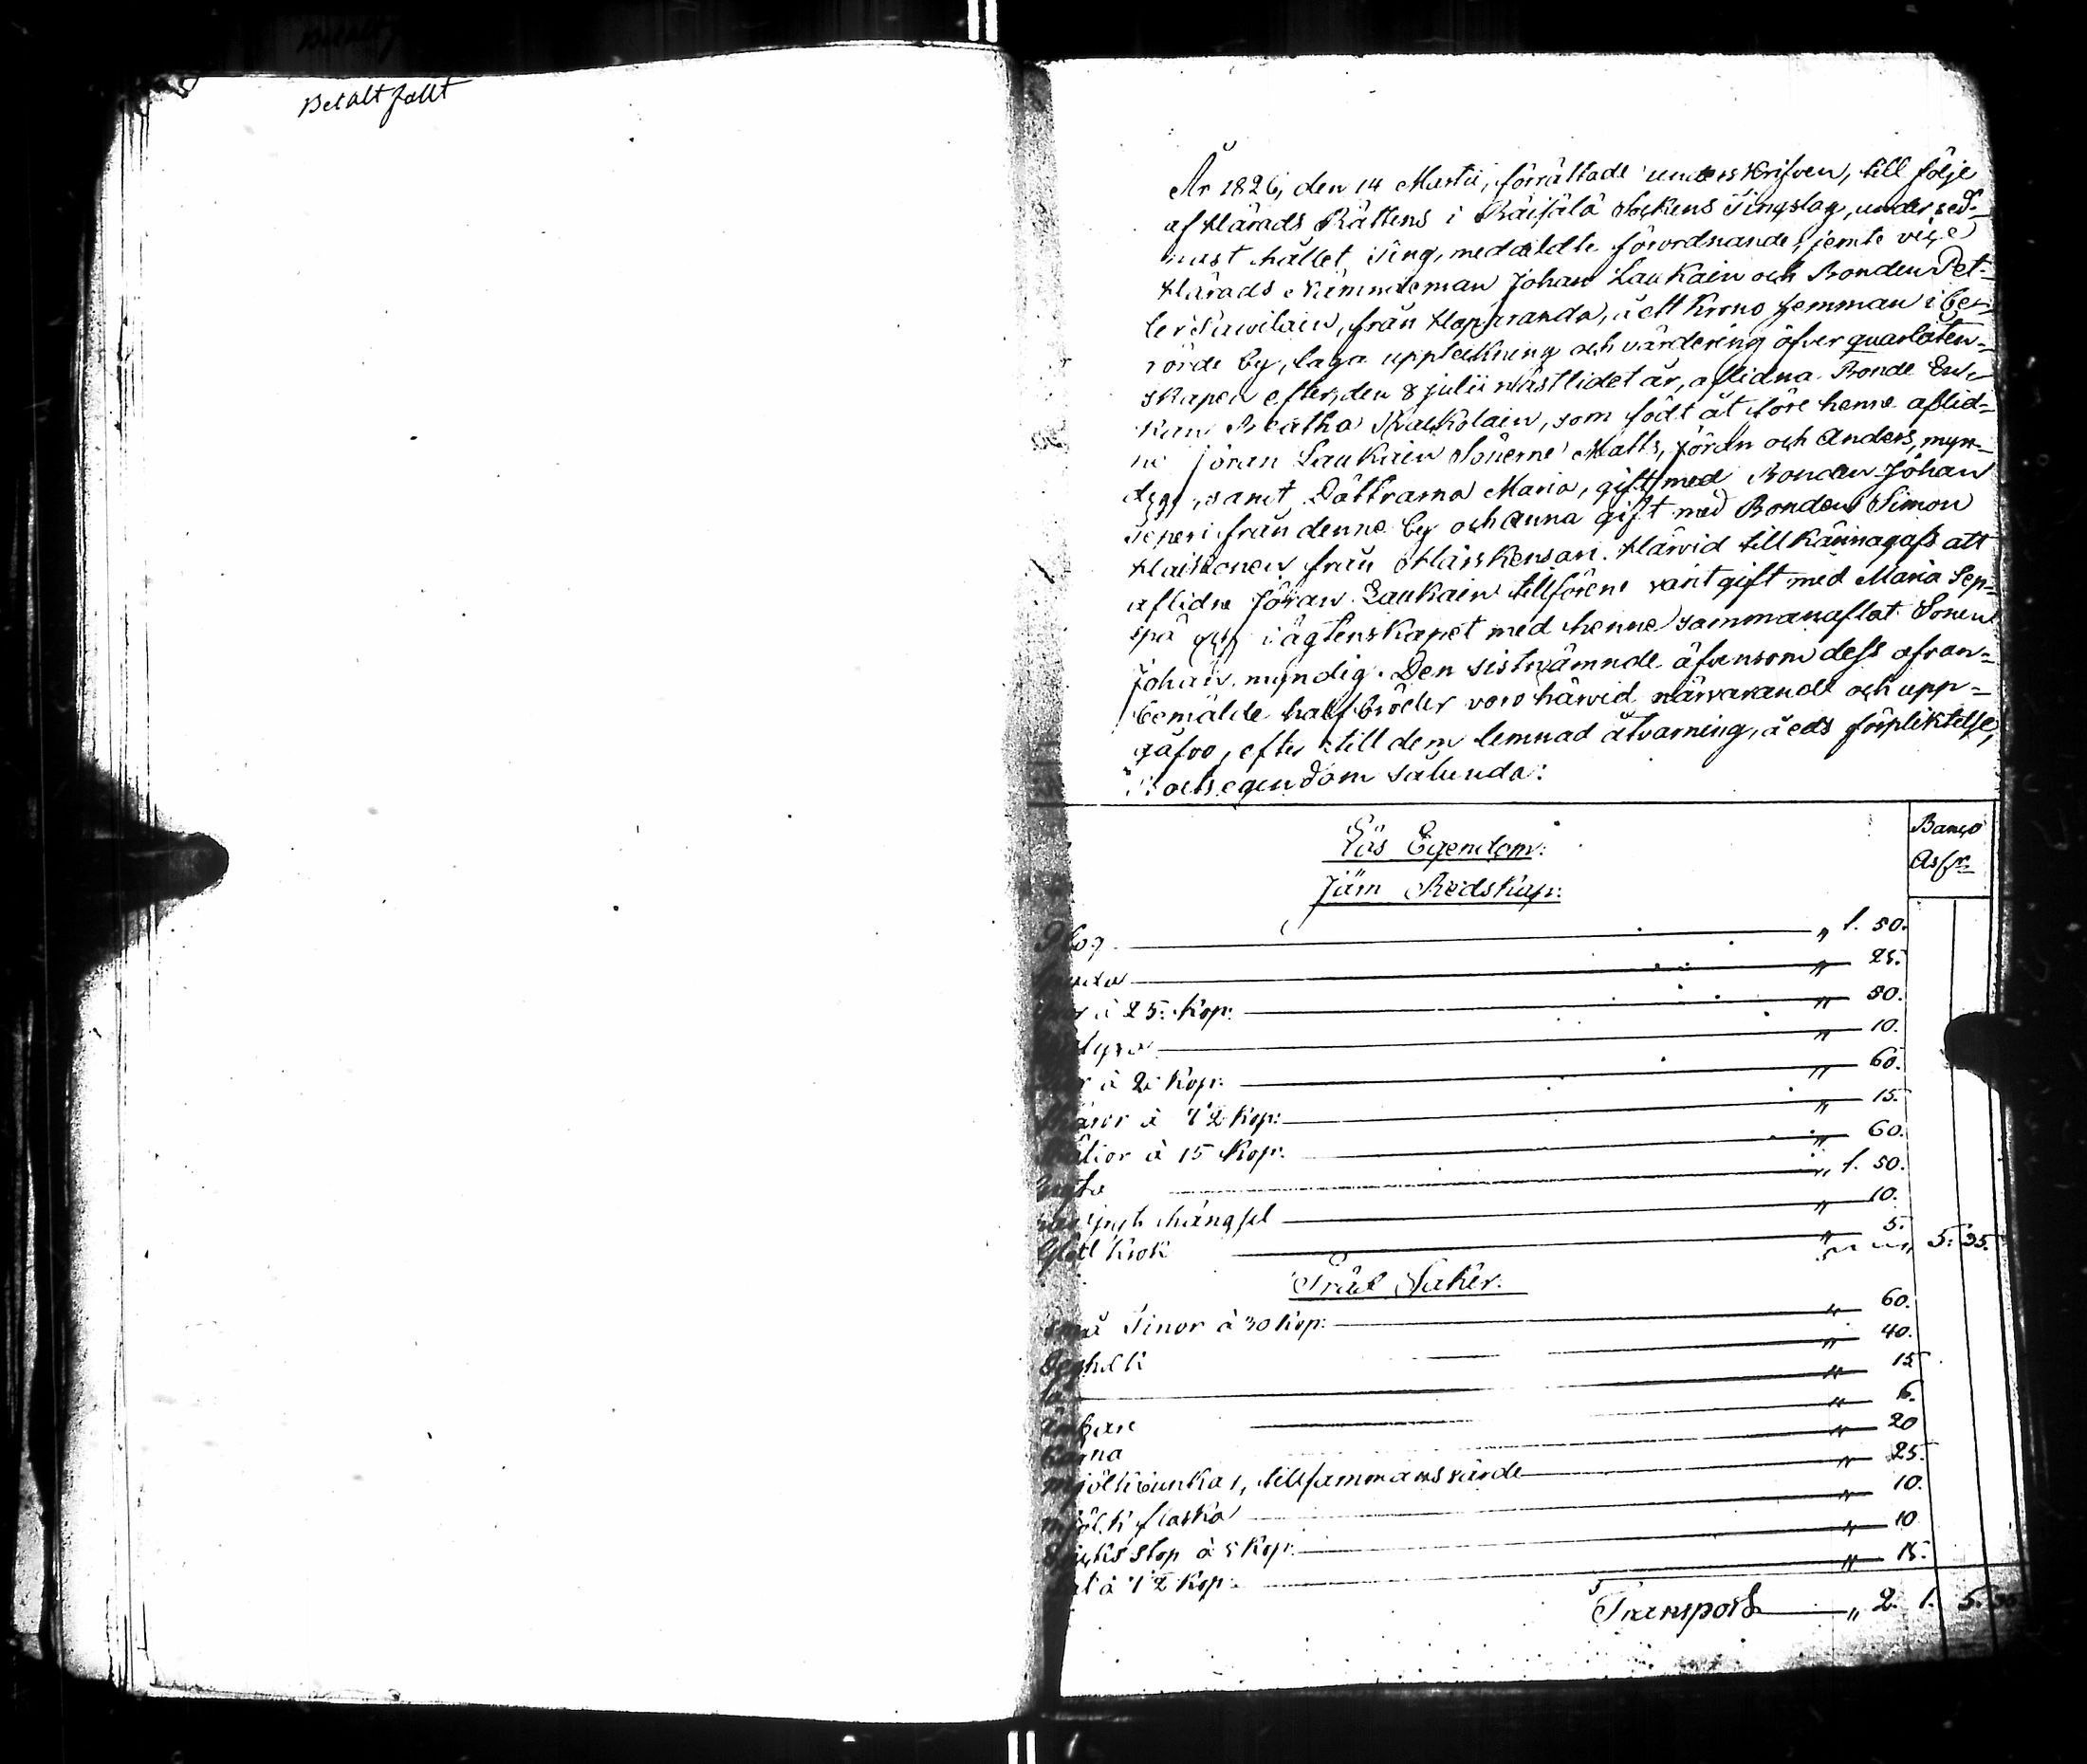 Betalt fattt
År 1826, den 14 Martii, förrättade underskrifven, till följe
af Härads Rättens i Räisälä Sockens Tingslag, under sed-
nast hållet Ting, meddelte förordnande, jemte vice
Härads Nämndeman Johan Laukain och Bonden Pet-
ter Sawilain, från Hoparanda, å ett Krono hemman i be-
rörde by, laga uppteckning och värdering öfver qvarlåten-
skapen efter, den 8 Julii nästlidet år, aflidna Bonde Enk-
kan Beatha Kackolain, som födt åt före henne aflid-
ne Jöran Laukain Sönerne Matts, Jöran och Anders, myn-
dige, samt Döttrarna Maria, gift med Bonden Johan
Teperi från denne by och Anna gift med Bonden Simon
från . Härvid tillkännagafs att
aflidne Jöran Laukain tillförene varit gift med Maria Sep-
pä och i ägtenskapet med henne sammanaflat Sonen
Johan, myndig. Den sistnämnde äfvensom dess ofvan-
bemälde halfbröder voro härvid närvarande och upp-
gåfvo, efter till dem lemnad åtvarning, å eds förpliktelse,
boets egendom sålunda:
Banco
Assgr.
Lös Egendom:
Järn Redskap:
Plog „ 1. 50.
„ 25.
à 25. Kop: „ 50.
„ 10.
à 2 Kop: „ 60.
à 7½ Kop: „ 15.
à 15 Kop: „ 60.
Gryta „ 1. 50.
hängsel „ 10.
krok „ 5. 5. 35.
Träd Saker.
små Tinor à 30 Kop: „ 60.
„ 40.
„ 15
„ 6.
Kärna „ 20
mjölkbunkar, tillsammans värde „ 25.
mjölk flaska „ 10.
stop à 5 Kop: „ 10
à 7½ Kop: „ 15.
Transport „ 2. 1. 5. 35